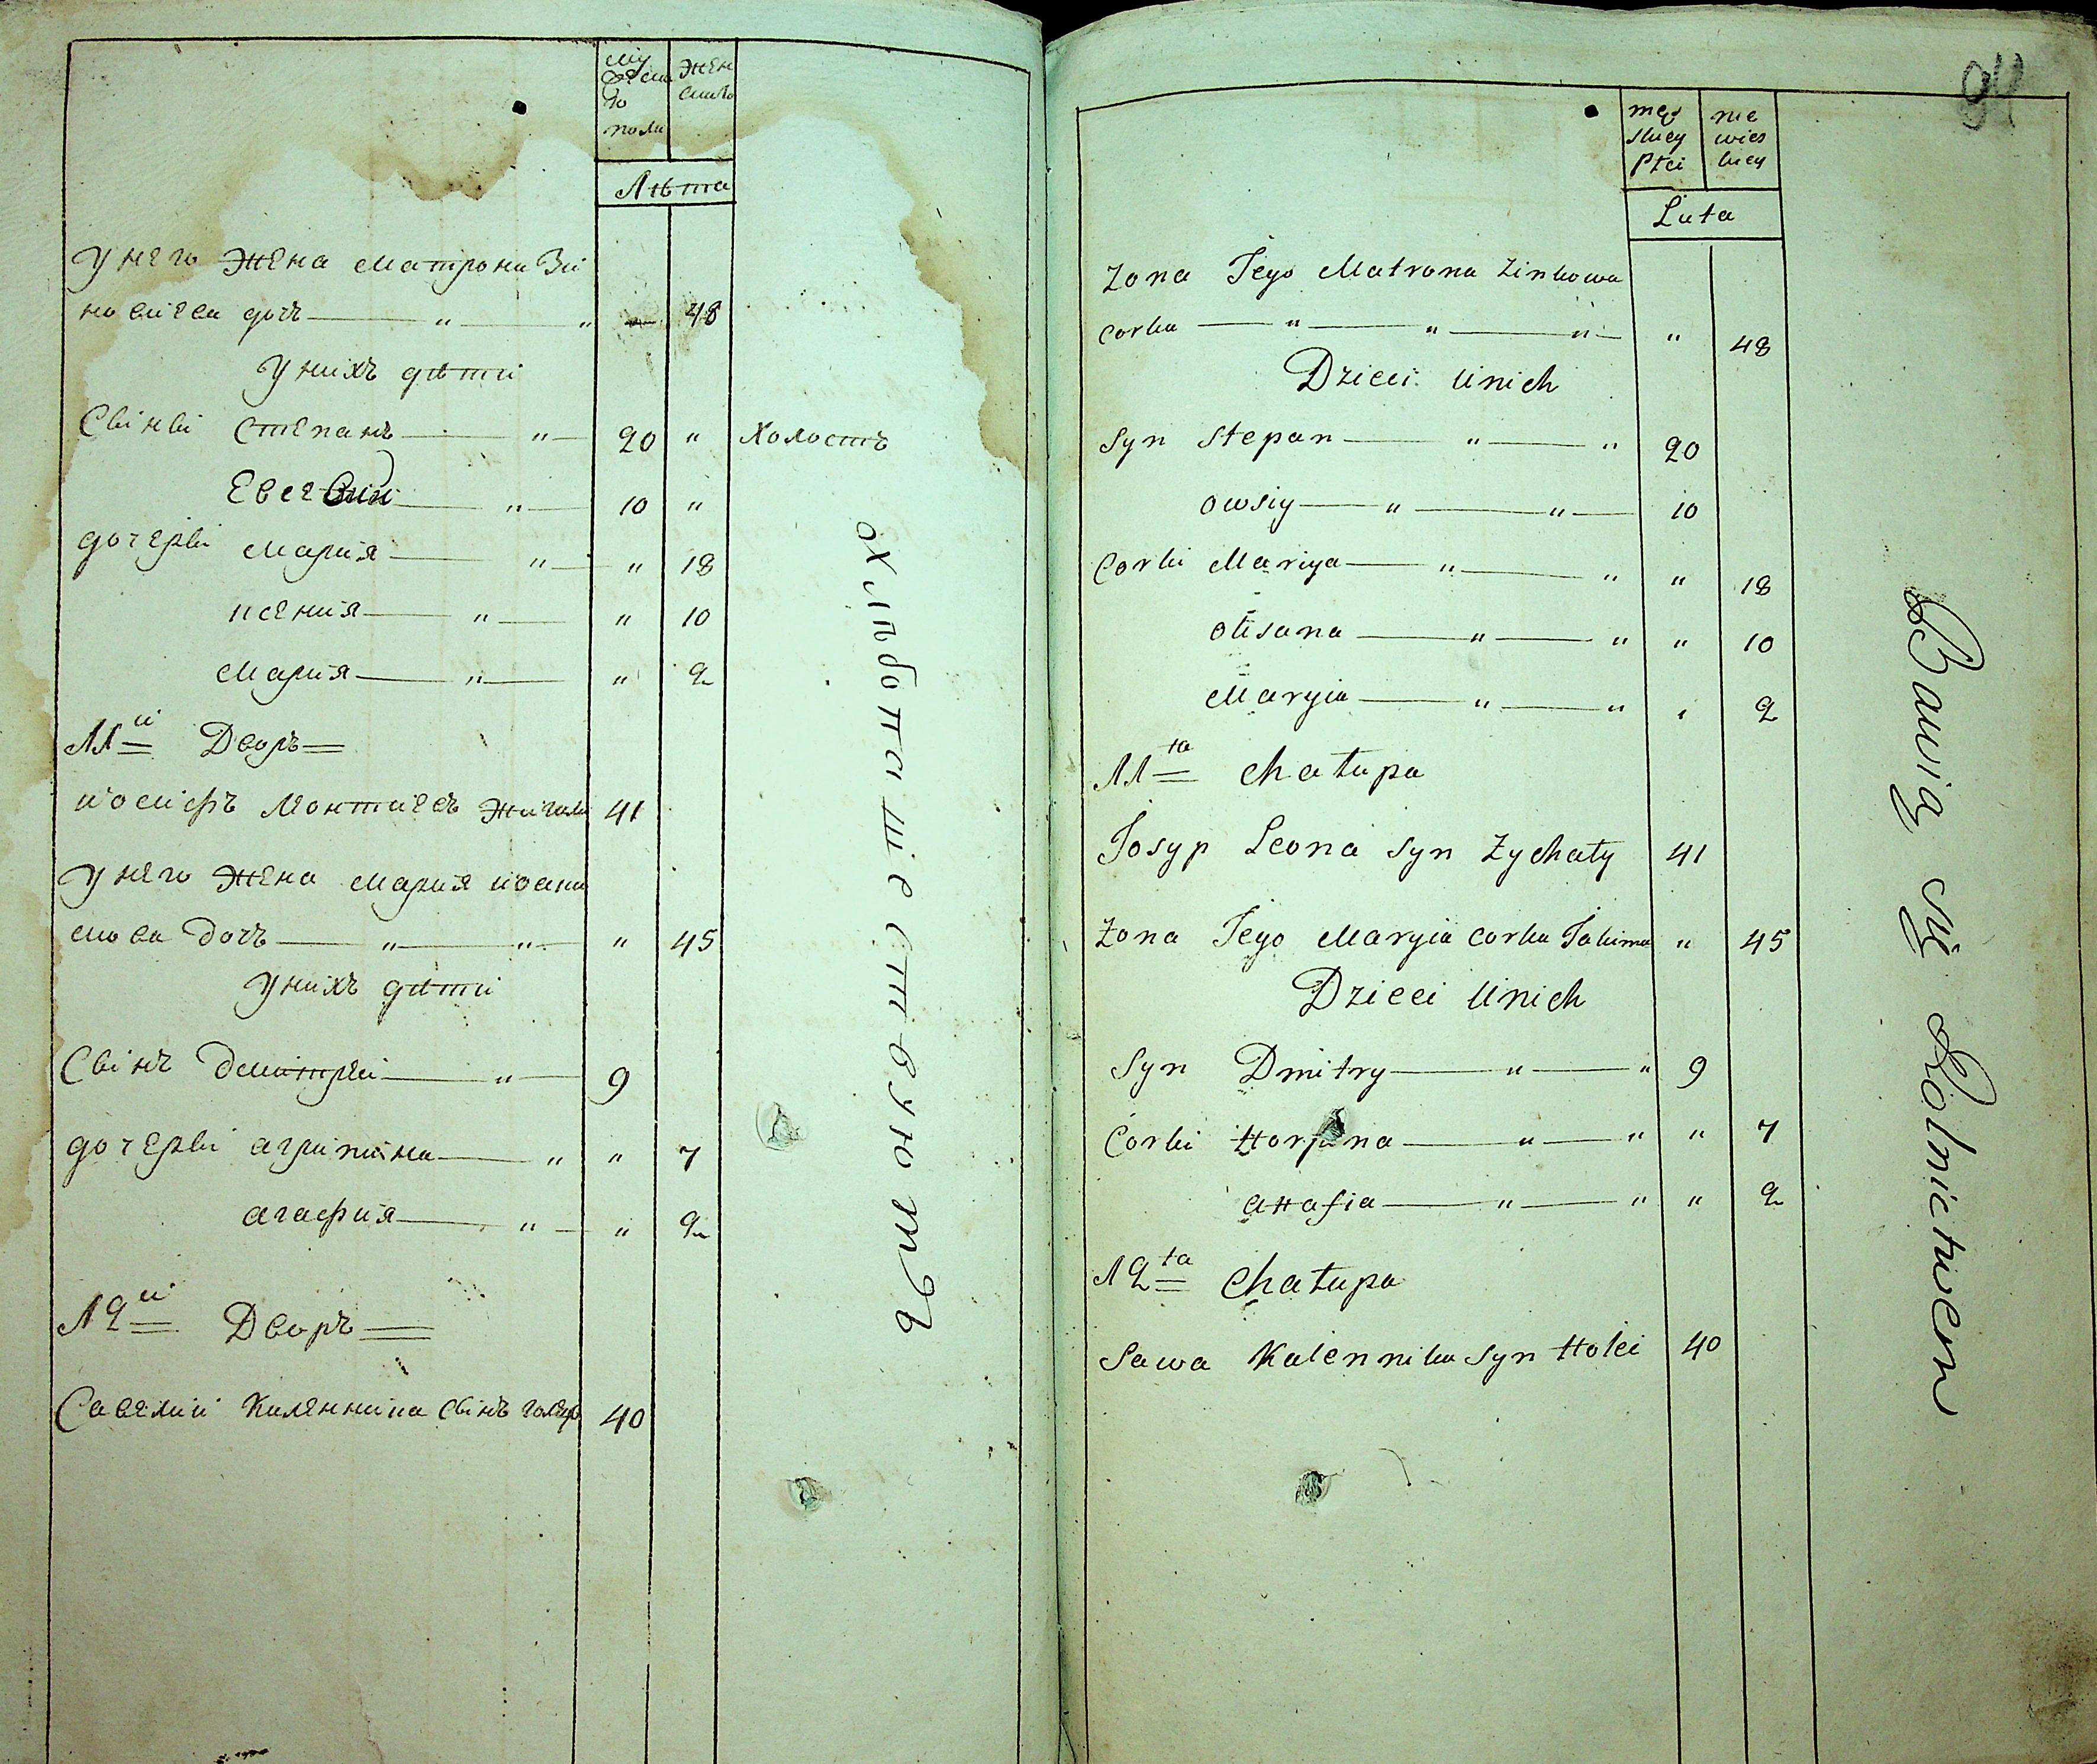 му жеска го пола
женскаго
Лѣта
У него жена Матрона Зи
новиева дочь — " — " — 48
У нихъ дѣти
Сыны Степанъ — " — 20 " Холостъ
Евсевий — " — 10 "
дочеры Мария — " — " 18
Ксения — " — " 10
Мария — " — " 2
11й Дворъ
Иосифъ Леонтиевъ 41
У него жена Мария Иоаки
мова дочь — " — " — " 45
У нихъ дѣти
Сынъ Дмитрей — " — 9
дочеры Агрипина — " " 7
Агафия — " — " 2
12й Дворъ
Савелий Каленника сынъ 40
Хлѣбопашествуютъ
94
męs kiey Płci
nie wies kiey
Lata
Żona Jego Matrona Zinkowa
corka — " — " — " — " 48
Dzieci Unich
Syn Stepan — " — " 20
Owsiy — " — " — 10
Corki Mariya — " — " " 18
Oxsana — " — " " 10
Maryia — " — " " 2
11ta Chałupa
Josyp Leona Syn Zychały 41
Żona Jego Maryia corka Jakima " 45
Dzieci Unich
Syn Dmitry — " — " 9
Corki Horpina — " — " " 7
Ahafia — " — " " 2
12ta Chałupa
Sawa Kalennika Syn Holei 40
Bawią się Rolnictwem